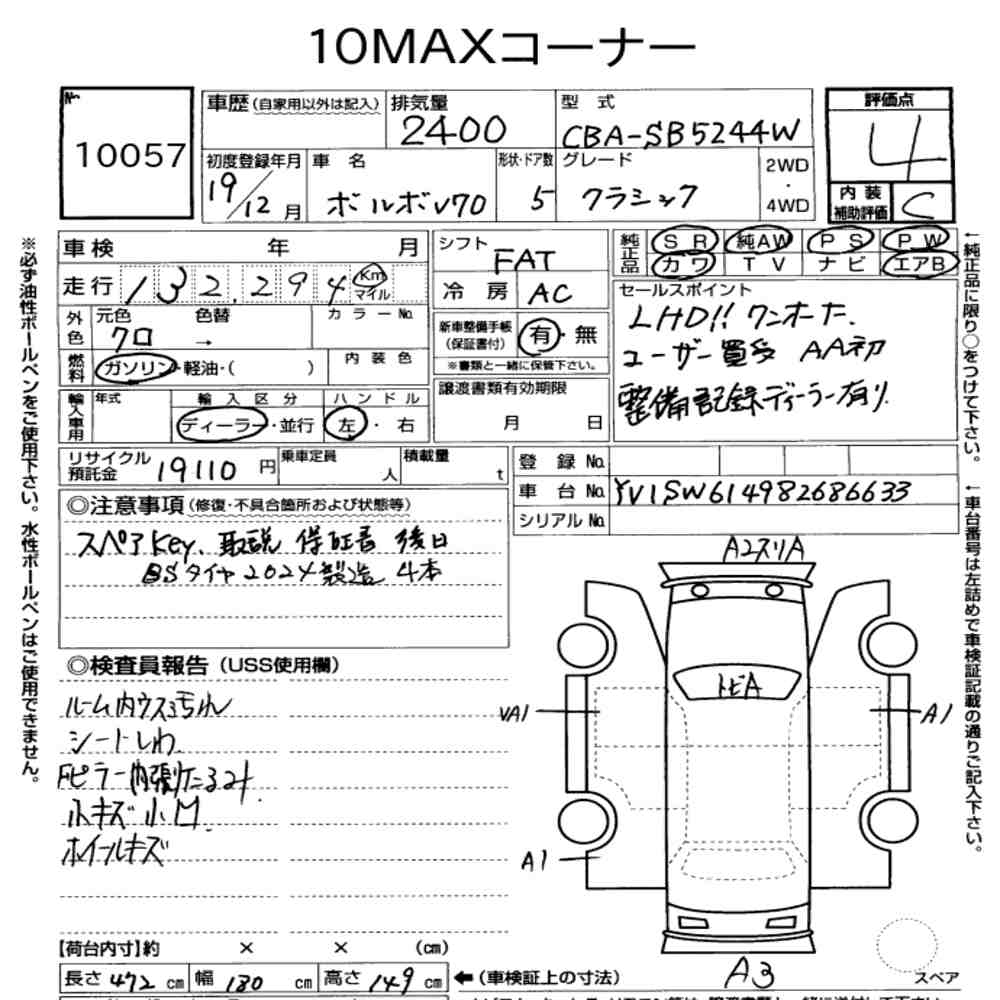 10MAXコーナー
No.
10057
車歴(自家用以外は記入)
排気量
2400
型 式
CBA-SB5244W
評価点
4
内装補助評価
C
初度登録年月
19/12月
車 名
ボルボV70
形状・ドア数
5
グレード
クラシック
2WD・4WD
車検 年 月
シフト
FAT
純正品
SR 純AW PS PW
カワ TV ナビ エアB
走行
132,294
Km
マイル
冷房
AC
セールスポイント
LHD!! ワンオーナー.
ユーザー買受 AA初
整備記録ディーラー有り.
外色
元色
クロ
色替
→
カラーNo.
新車整備手帳(保証書付)
有・無
※書類と一緒に保管下さい。
燃料
ガソリン・軽油・( )
内装色
譲渡書類有効期限
月 日
輸入車用
年式
輸入区分
ディーラー・並行
ハンドル
左・右
リサイクル預託金
19110円
乗車定員
人
積載量
t
登録No.
車台No.
YV1SW614982686633
シリアルNo.
◎注意事項(修復・不具合箇所および状態等)
スペアKey、取説 保証書 後日
BSタイヤ2024製造 4本
◎検査員報告(USS使用欄)
ルーム内ウスヨゴレ
シートしわ
Fピラー内張りたるみ
小キズ小凹
ホイールキズ
A2スリA
トビA
UA1
A1
A1
A3
スペア
【荷台内寸】約 × × (cm)
長さ472cm 幅180cm 高さ149cm
←(車検証上の寸法)
※必ず油性ボールペンをご使用下さい。水性ボールペンはご使用できません。
←純正品に限り○をつけて下さい。
←車台番号は左詰めで車検証記載の通りご記入下さい。